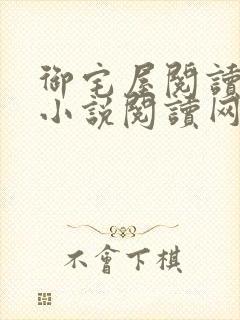 御宅屋閱讀
小説閱讀网
不會下棋